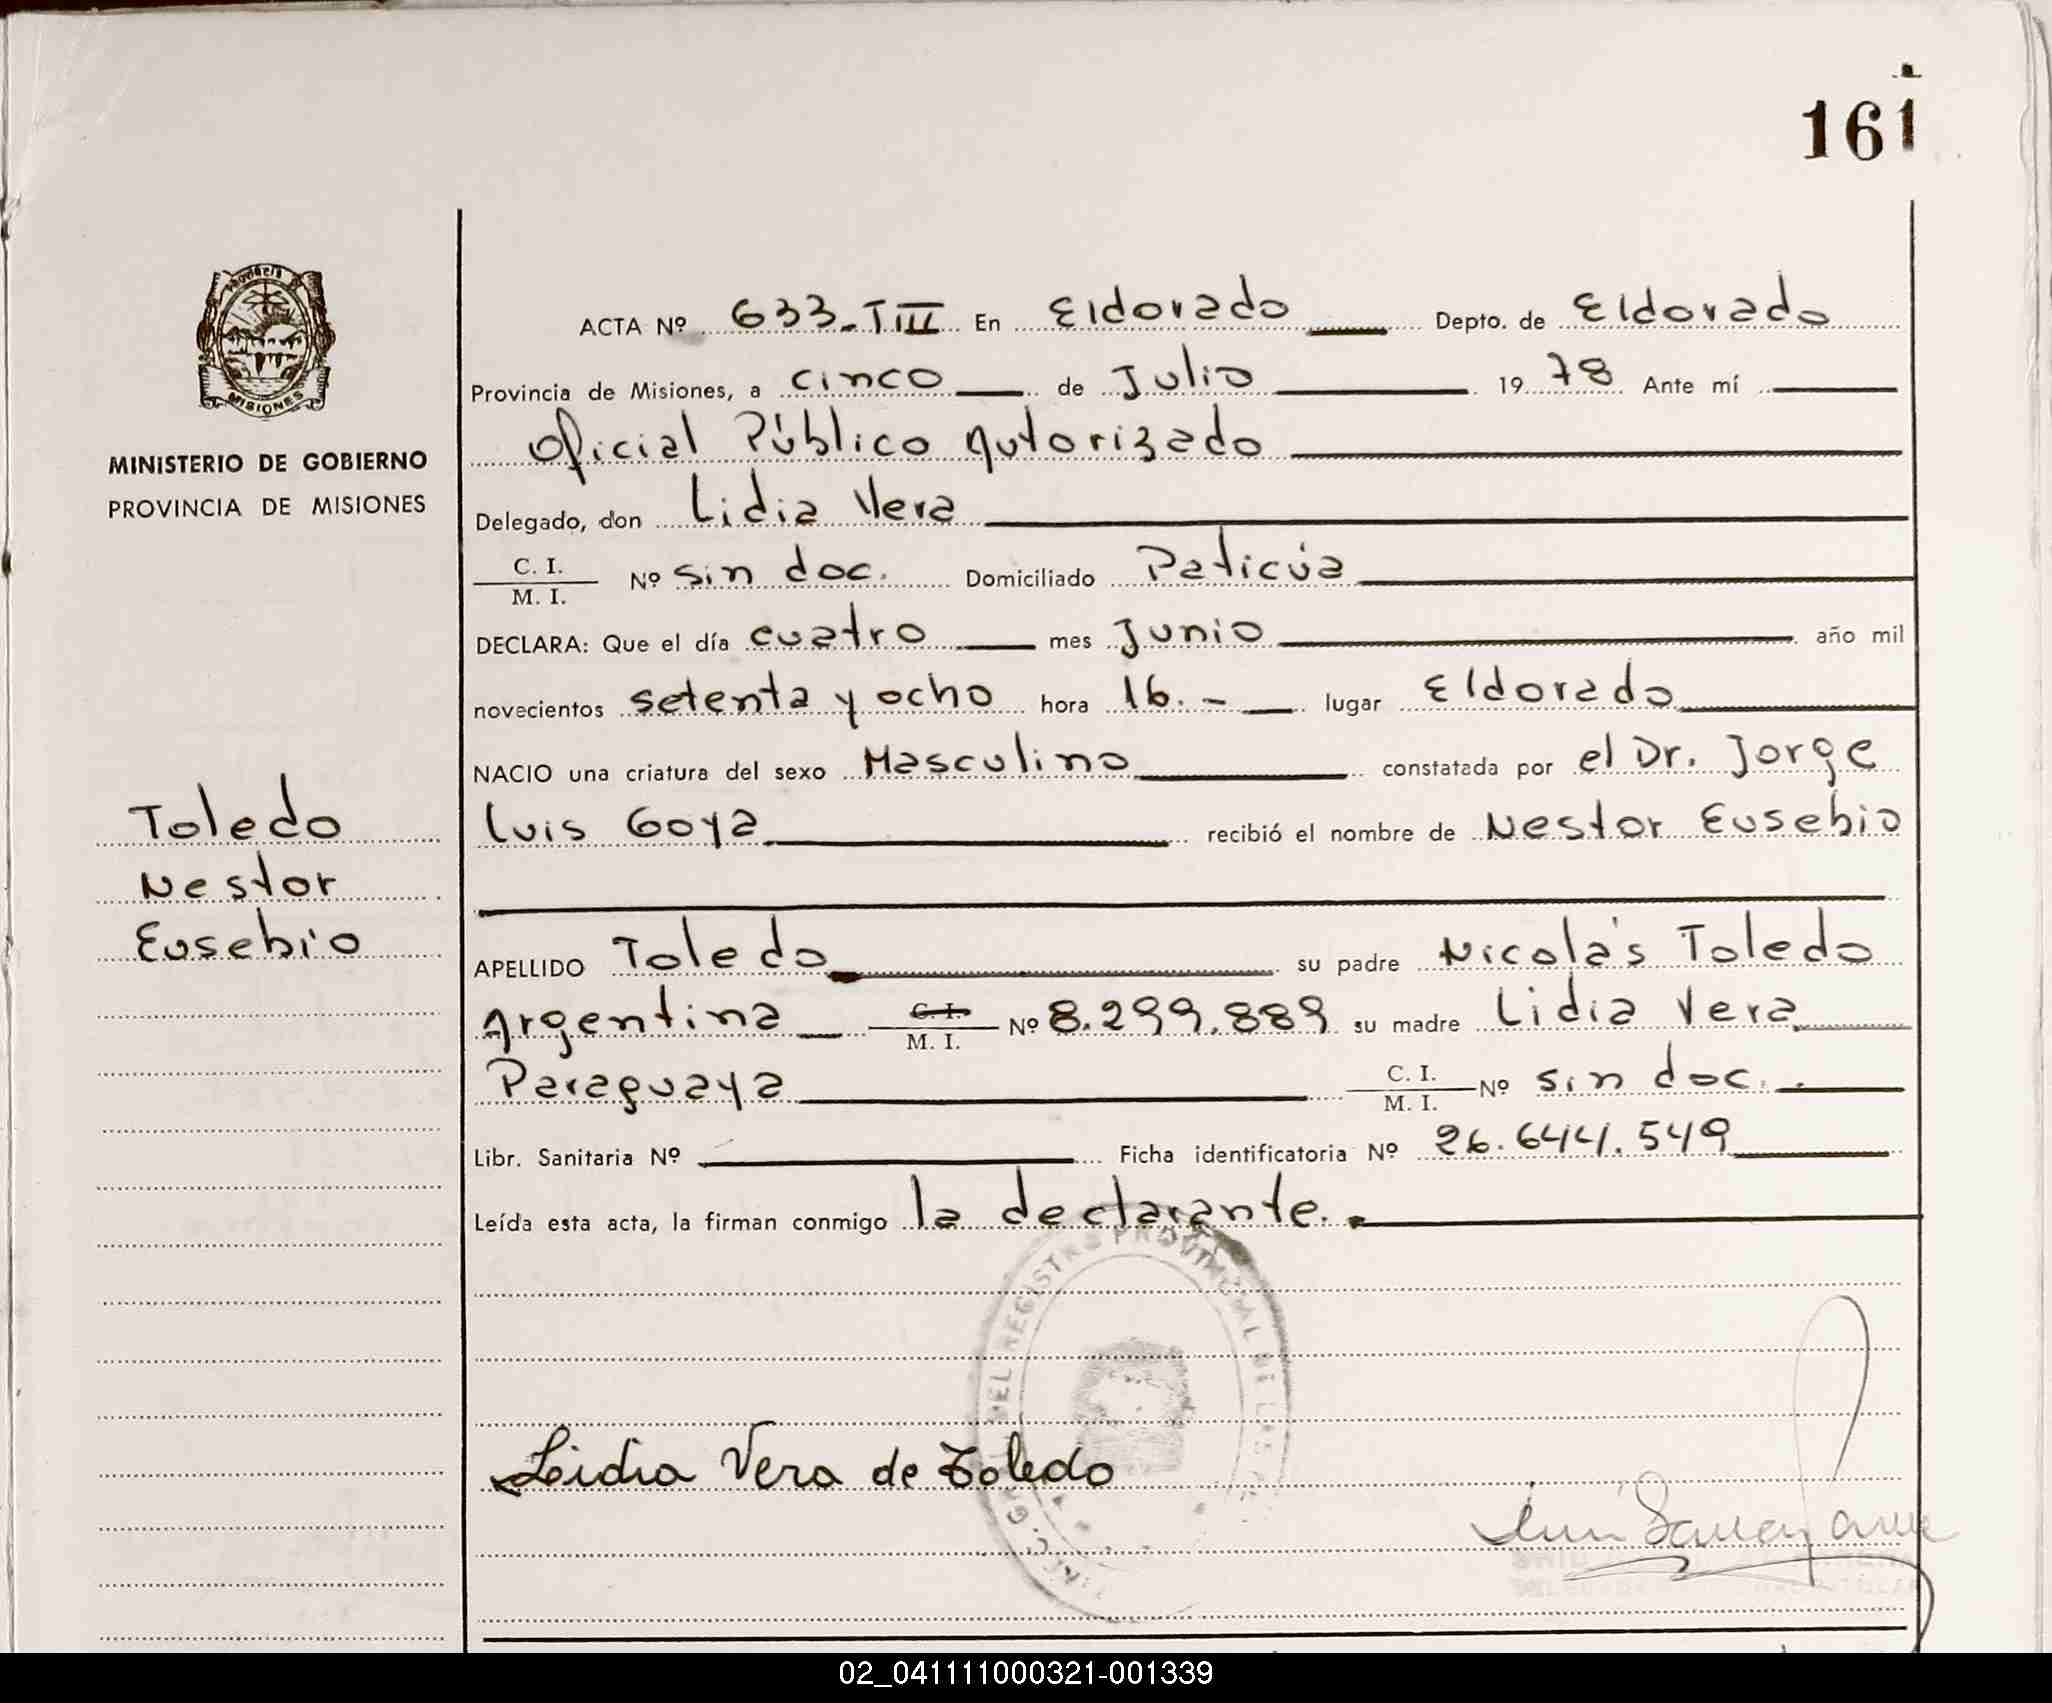 161
ACTA Nº 633-T III En Eldorado Depto. de Eldorado
Provincia de Misiones, a cinco de Julio 1978 Ante mí
Oficial Público Autorizado
MINISTERIO DE GOBIERNO
PROVINCIA DE MISIONES
MISIONES
Delegado, don Lidia Vera
C. I. / M. I. Nº sin doc. Domiciliado Paticúa
DECLARA: Que el día cuatro mes Junio año mil
novecientos setenta y ocho hora 16.- lugar Eldorado
NACIO una criatura del sexo Masculino constatada por el Dr. Jorge
Luis Goya recibió el nombre de Nestor Eusebio
Toledo
Nestor
Eusebio
APELLIDO Toledo su padre Nicolás Toledo
Argentina C. I. / M. I. Nº 8.299.889 su madre Lidia Vera
Paraguaya C. I. / M. I. Nº sin doc.
Libr. Sanitaria Nº Ficha identificatoria Nº 26.644.549
Leída esta acta, la firman conmigo la declarante.
DEL REGISTRO PROVINCIAL DE LAS
Lidia Vera de Toledo
02_041111000321-001339